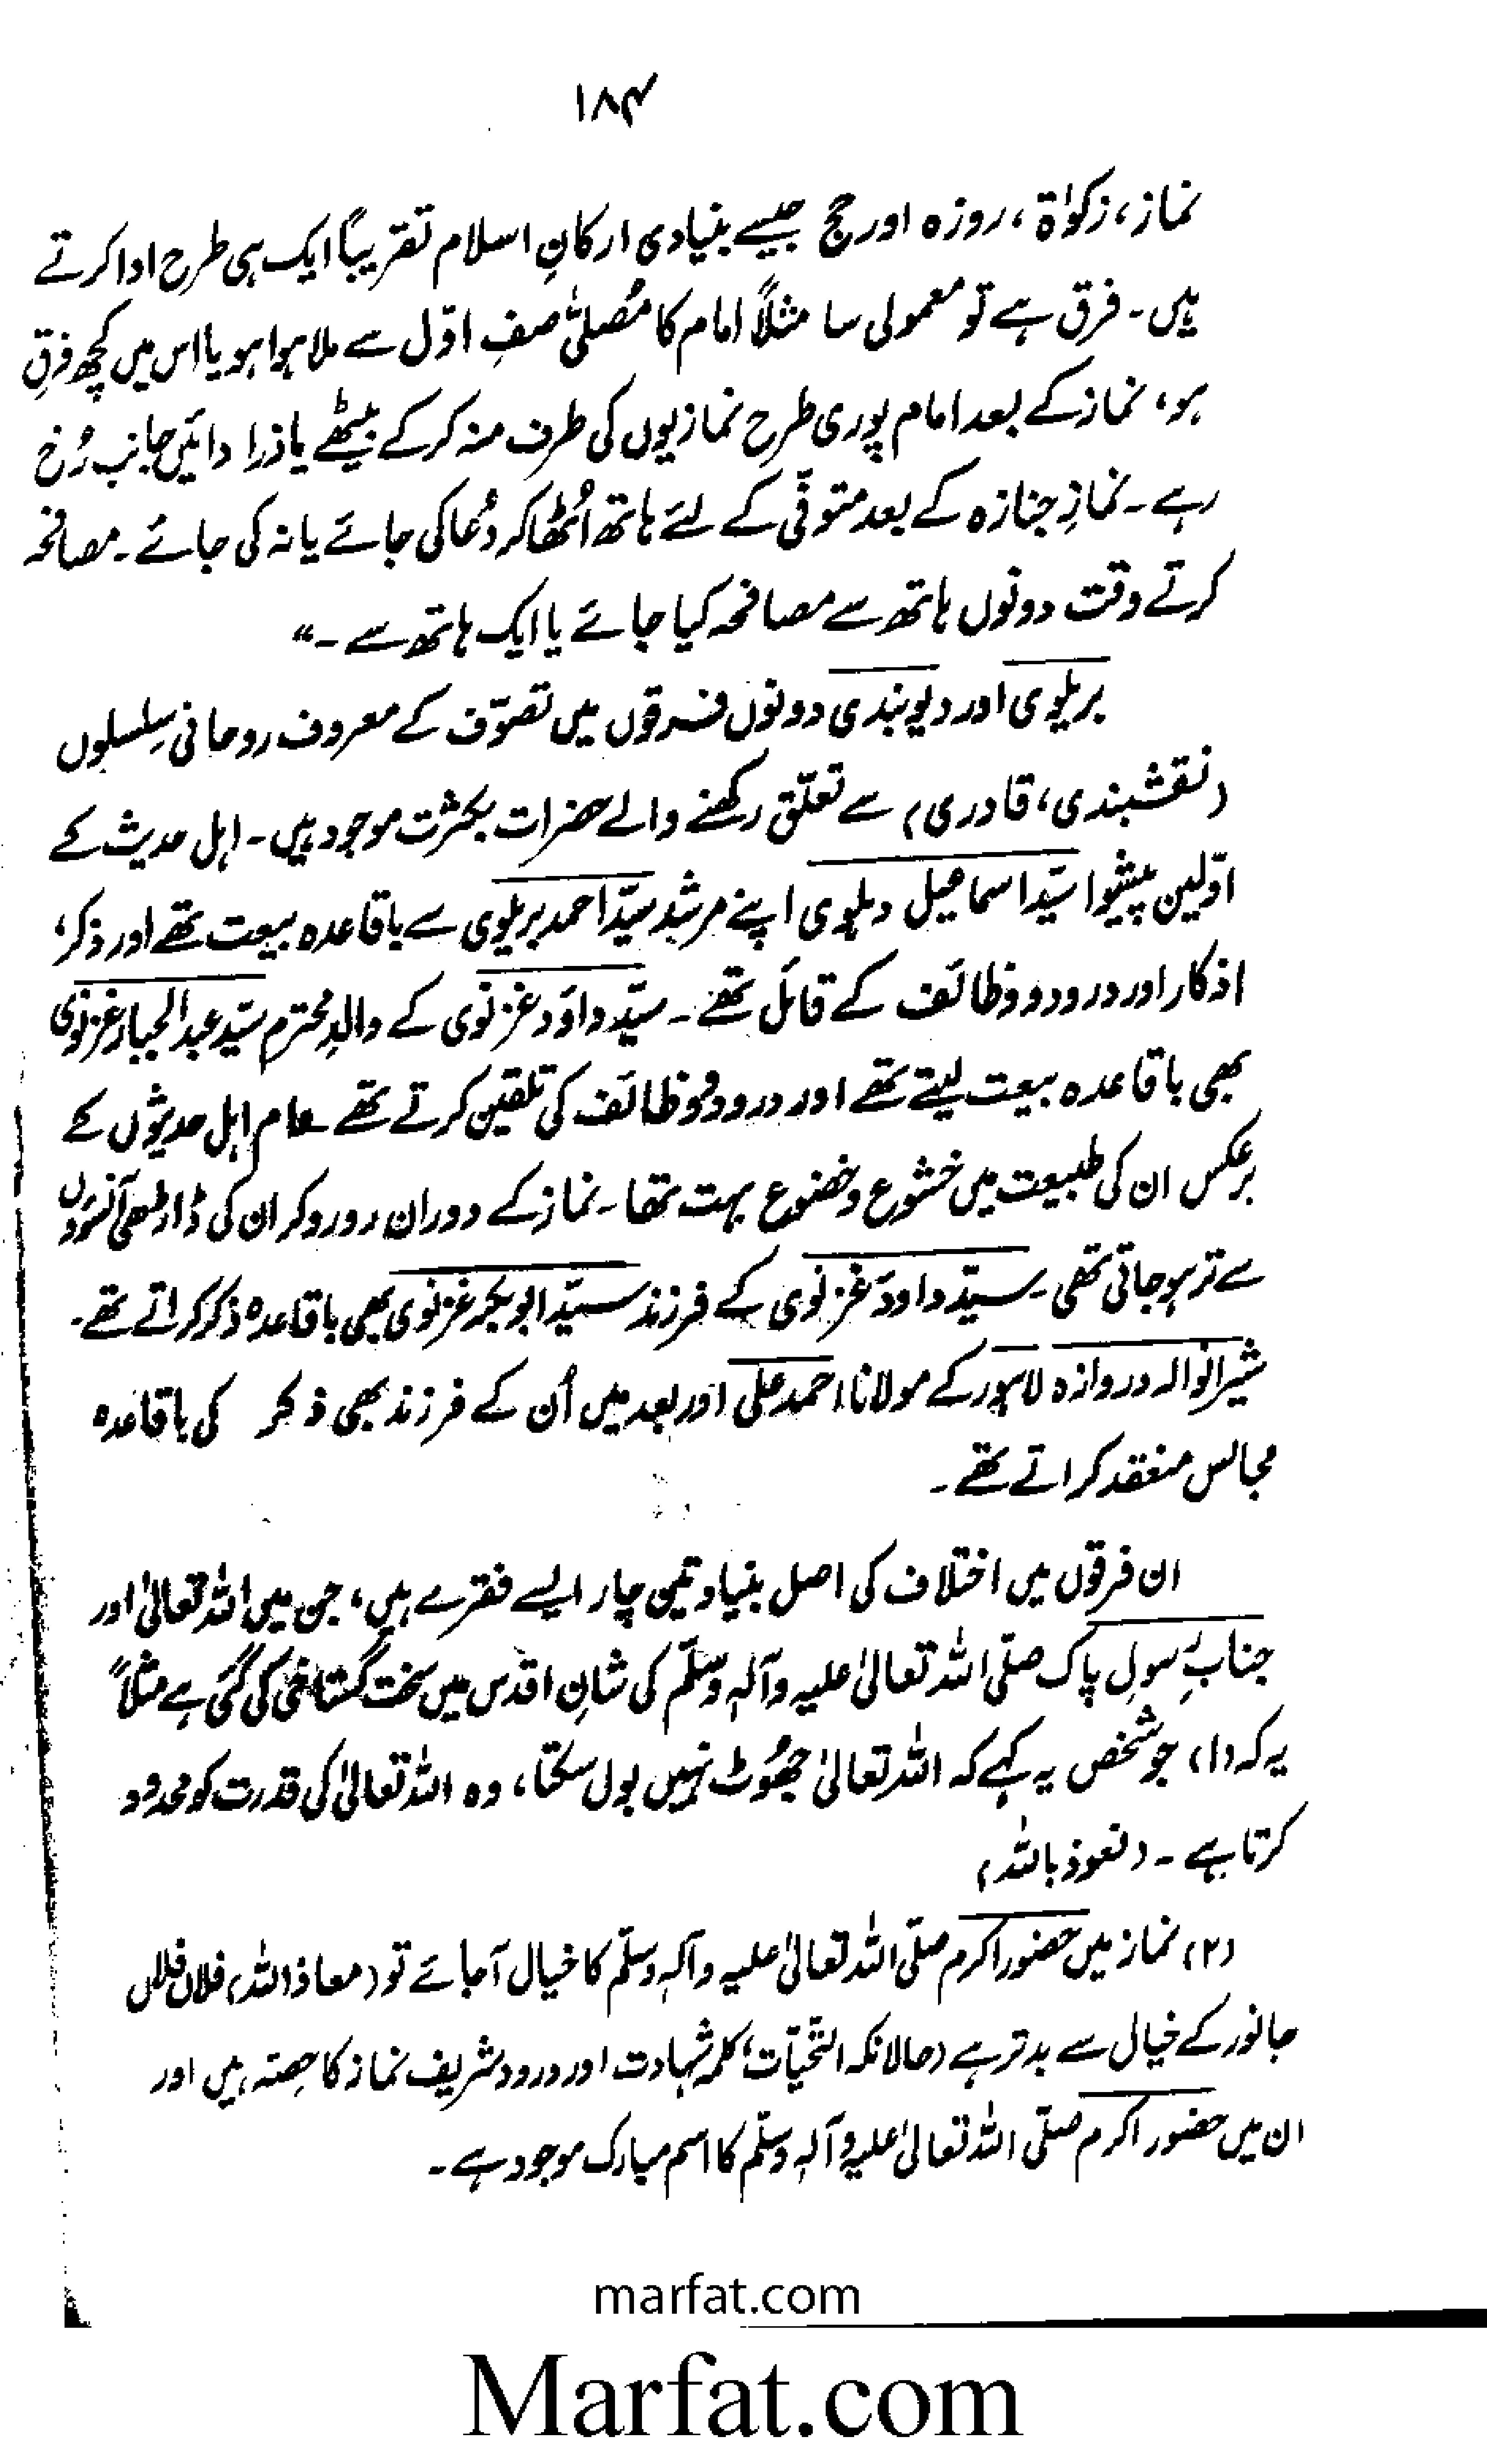 ۱۸۴
نماز، زکوٰۃ، روزہ اور حج جیسے بنیادی ارکانِ اسلام تقریباً ایک ہی طرح ادا کرتے
ہیں۔ فرق ہے تو معمولی سا مثلاً امام کا مُصلّیٰ صفِ اوّل سے ملا ہوا ہو یا اس میں کچھ فرق
ہو، نماز کے بعد امام پوری طرح نمازیوں کی طرف منہ کر کے بیٹھے یا ذرا دائیں جانب رُخ
رہے۔ نمازِ جنازہ کے بعد متوفّی کے لئے ہاتھ اُٹھا کر دُعا کی جائے یا نہ کی جائے۔ مصافحہ
کرتے وقت دونوں ہاتھ سے مصافحہ کیا جائے یا ایک ہاتھ سے۔“
بریلوی اور دیوبندی دونوں فرقوں میں تصوّف کے معروف روحانی سِلسلوں
(نقشبندی، قادری) سے تعلّق رکھنے والے حضرات بکثرت موجود ہیں۔ اہل حدیث کے
اوّلین پیشوا سیّد اسماعیل دہلوی اپنے مرشد سیّد احمد بریلوی سے باقاعدہ بیعت تھے اور ذکر،
اذکار اور درود و وظائف کے قائل تھے۔ سیّد داؤد غزنوی کے والدِ محترم سیّد عبدالجبار غزنوی
بھی باقاعدہ بیعت لیتے تھے اور درود و وظائف کی تلقین کرتے تھے۔ عام اہل حدیثوں کے
برعکس ان کی طبیعت میں خشوع و خضوع بہت تھا۔ نماز کے دوران رو رو کر ان کی ڈاڑھی آنسوؤں
سے تر ہو جاتی تھی۔ سیّد داؤد غزنوی کے فرزند سیّد ابوبکر غزنوی بھی باقاعدہ ذکر کراتے تھے۔
شیرانوالہ دروازہ لاہور کے مولانا احمد علی اور بعد میں اُن کے فرزند بھی ذکر کی باقاعدہ
مجالس منعقد کراتے تھے۔
ان فرقوں میں اختلاف کی اصل بنیاد تین چار ایسے فقرے ہیں، جن میں اللہ تعالیٰ اور
جنابِ رسولِ پاک صلّی اللہ تعالیٰ علیہ وآلہٖ وسلّم کی شانِ اقدس میں سخت گستاخی کی گئی ہے مثلاً
یہ کہ (۱) جو شخص یہ کہے کہ اللہ تعالیٰ جھُوٹ نہیں بول سکتا، وہ اللہ تعالیٰ کی قدرت کو محدود
کرتا ہے۔ (نعوذ باللہ)
(۲) نماز میں حضور اکرم صلّی اللہ تعالیٰ علیہ وآلہٖ وسلّم کا خیال آ جائے تو (معاذ اللہ) فلاں فلاں
جانور کے خیال سے بدتر ہے (حالانکہ التّحیّات، کلمہ شہادت اور درود شریف نماز کا حصّہ ہیں اور
ان میں حضور اکرم صلّی اللہ تعالیٰ علیہ وآلہٖ وسلّم کا اسم مبارک موجود ہے۔
marfat.com
Marfat.com